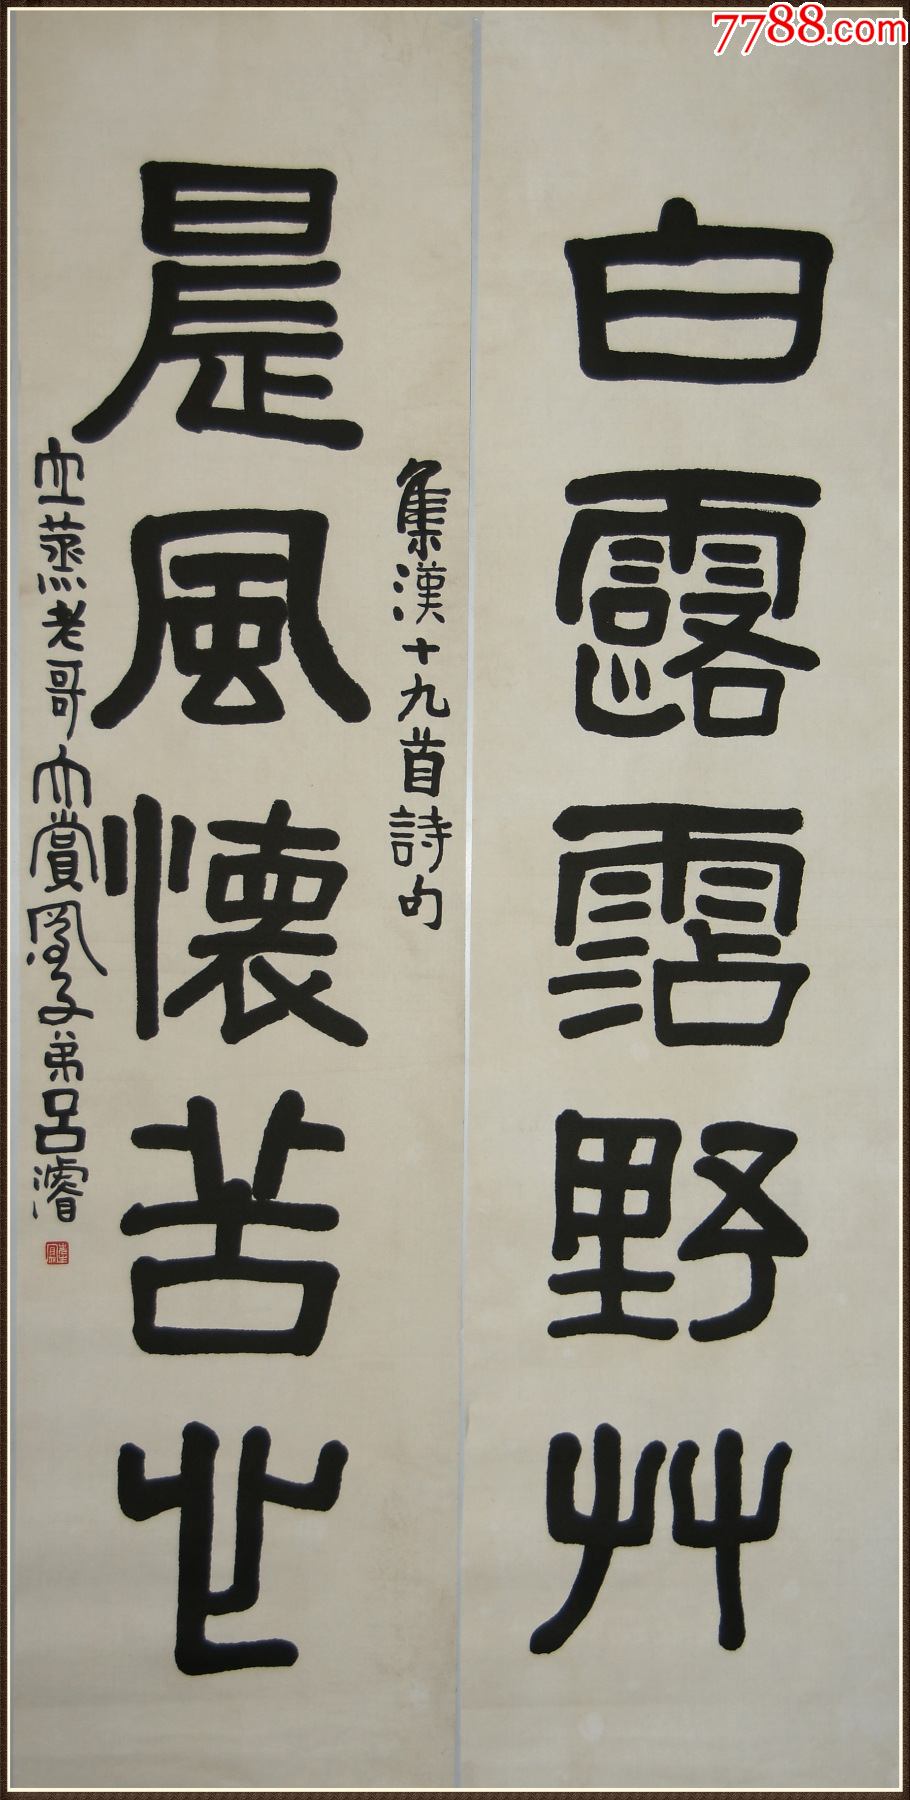 白露霑野艸
集漢十九首詩句
晨風懷苦心
立蒸老哥大賞 鳳子弟呂濬
7788.com